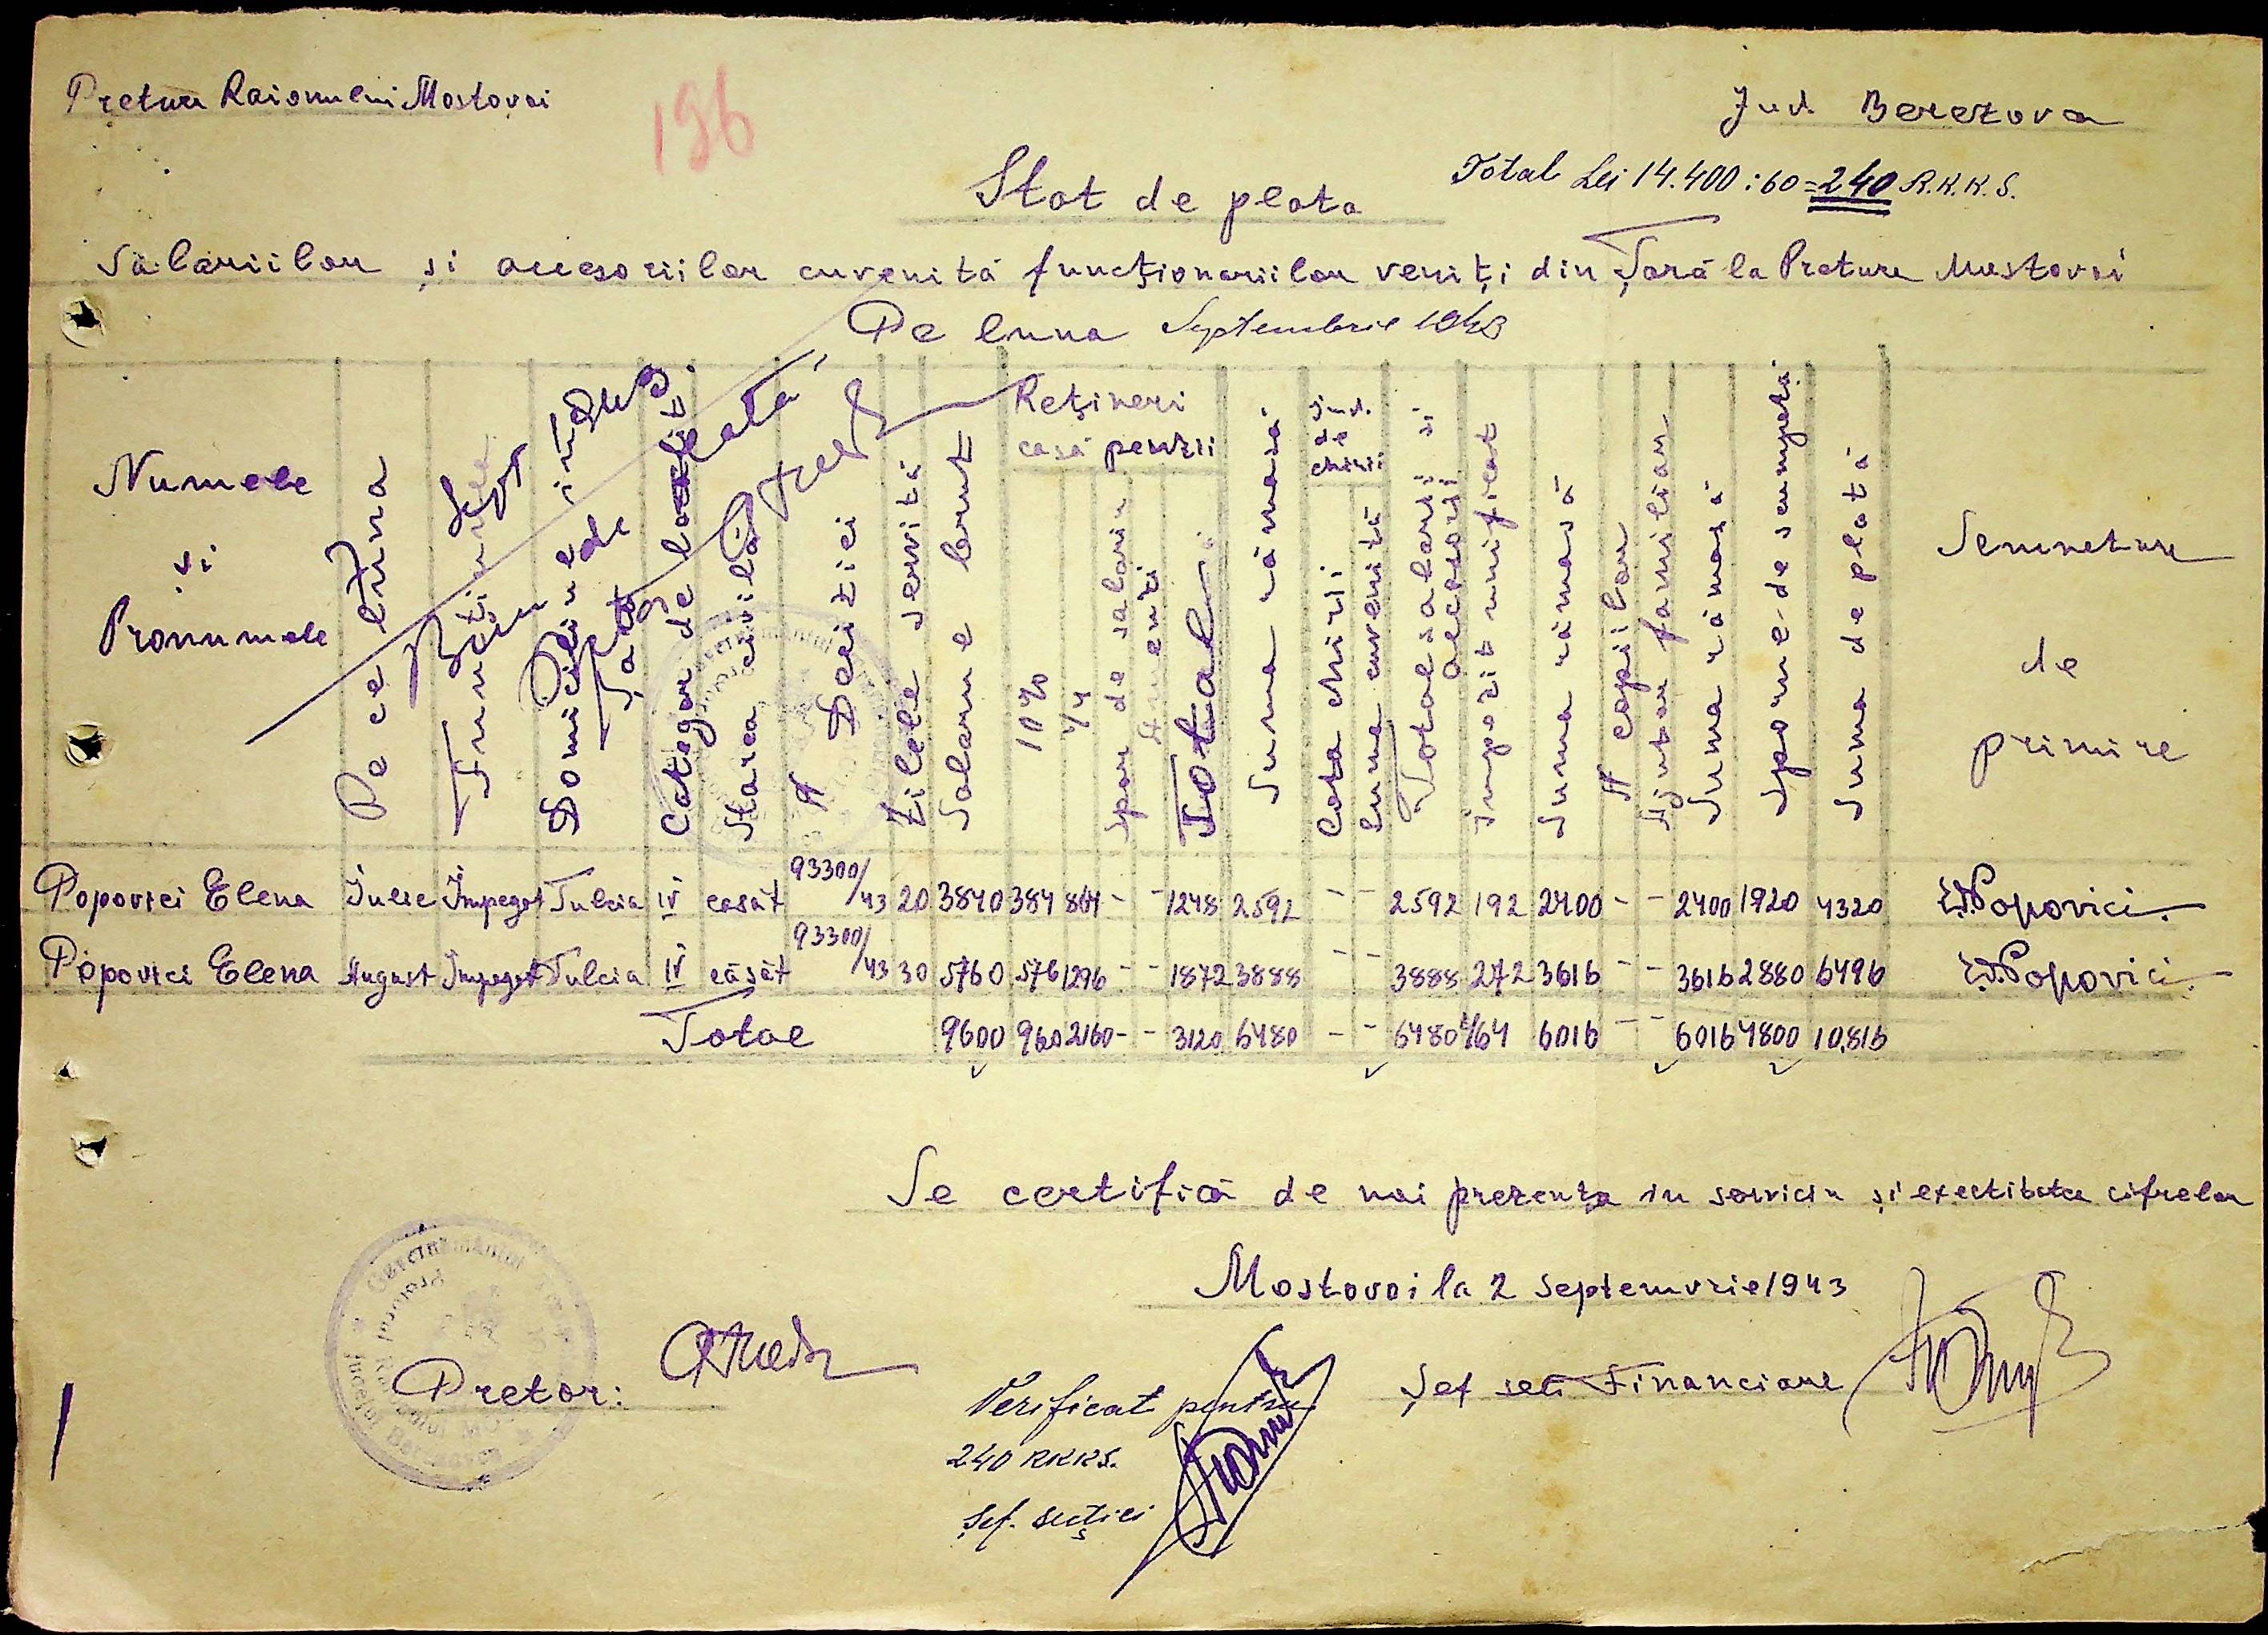 Pretura Raionului Mostovoi
196
Jud Berezova
Total Lei 14.400 : 60 = 240 R.K.K.S.
Stat de plata
Salariilor și accesoriilor cuvenită funcționariilor veniți din Țară la Pretura Mostovoi
Pe luna Septembrie 1943
Numele și Pronumele
Pe ce luna
Funcțiunea
Domiciliul în țară
Categor de localit
Starea civilă
N Deciziei
Zilele servită
Salarul brut
Rețineri casă penzii
10%
1/4
Spor de salariu
Total
Suma rămasă
Ind. de chirii
Cota chirii
Suma cuvenită
Total salarii și accesorii
Impozit unificat
Suma rămasă
N copiilor
Ajutor familiar
Suma rămasă
Sporul de scumpete
Suma de plată
Semnetura de primire
Bun de
plată
Popovici Elena Iulie Impegat Tulcia IV casăt 93300/43 20 3840 384 864 - - 1248 2592 - - 2592 192 2400 - - 2400 1920 4320 E.Popovici
Popovici Elena August Impegat Tulcia IV căsăt 93300/43 30 5760 576 1296 - - 1872 3888 - - 3888 272 3616 - - 3616 2880 6496 E.Popovici
Total 9600 960 2160 - - 3120 6480 - - 6480 464 6016 - - 6016 4800 10,816
Se certifică de noi prezența in serviciu și exectitatea cifrelor
Mostovoi la 2 Septemvrie 1943
Pretor:
Verificat pentru
240 RKKS.
Șef. secției
Șef secti Financiare
Guvernământul
Județul Berezovca